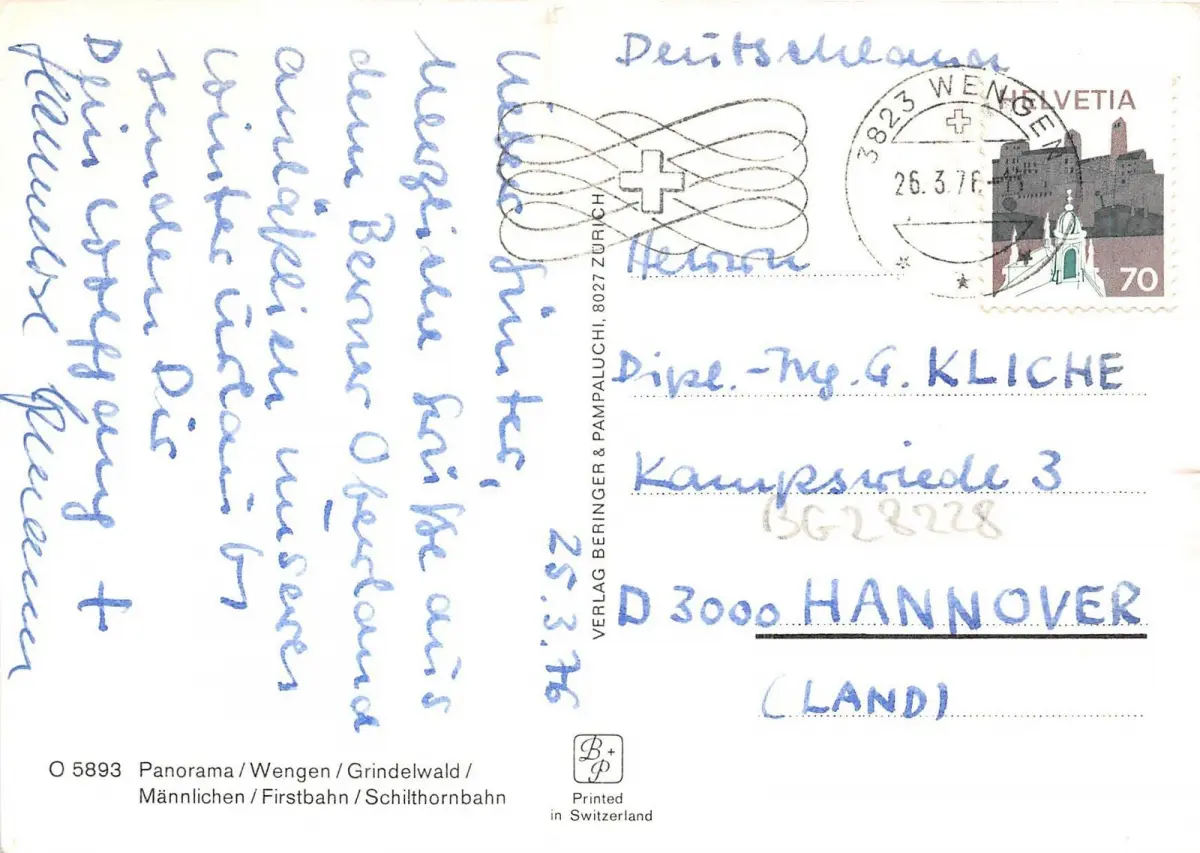 25.3.76
Lieber Günter,
Herzliche Grüße aus
dem Berner Oberland
anläßlich unseres
Winterurlaub
senden Dir
Dein Wolfgang +
Hannelore
Deutschland
HELVETIA
70
3823 WENGEN
26.3.76
Herrn
Dipl.-Ing. G. KLICHE
Kampswiede 3
BG28228
D 3000 HANNOVER
(LAND)
VERLAG BERINGER & PAMPALUCHI, 8027 ZÜRICH
O 5893 Panorama / Wengen / Grindelwald /
Männlichen / Firstbahn / Schilthornbahn
B + P
Printed
in Switzerland